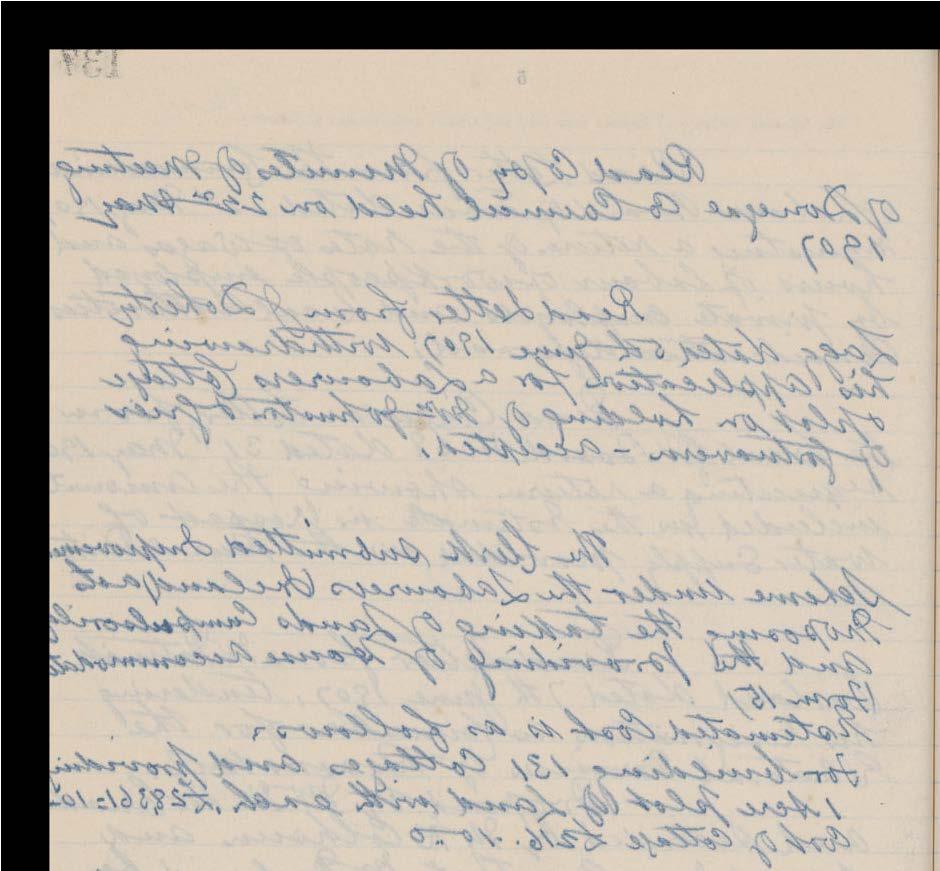 137
5
Read Copy of Minutes of Meeting
of Donegal Co Council held on 22nd May
1907
Read Letter from J Doherty
Lagg dated 5th June 1907 withdrawing
his application for a Labourers Cottage
& plot on holding of Wm Johnston Grier
of - accepted.
The Clerk submitted Improvement
Scheme under the Labourers Ireland acts
Proposing the taking of Lands Compulsorily
and the providing of House Accommodat
Form
Estimated Cost is as follows
For building 131 Cottages and providing
1 Acre plot of land with each. £28361=10=
Cost of Cottage £216..10..0